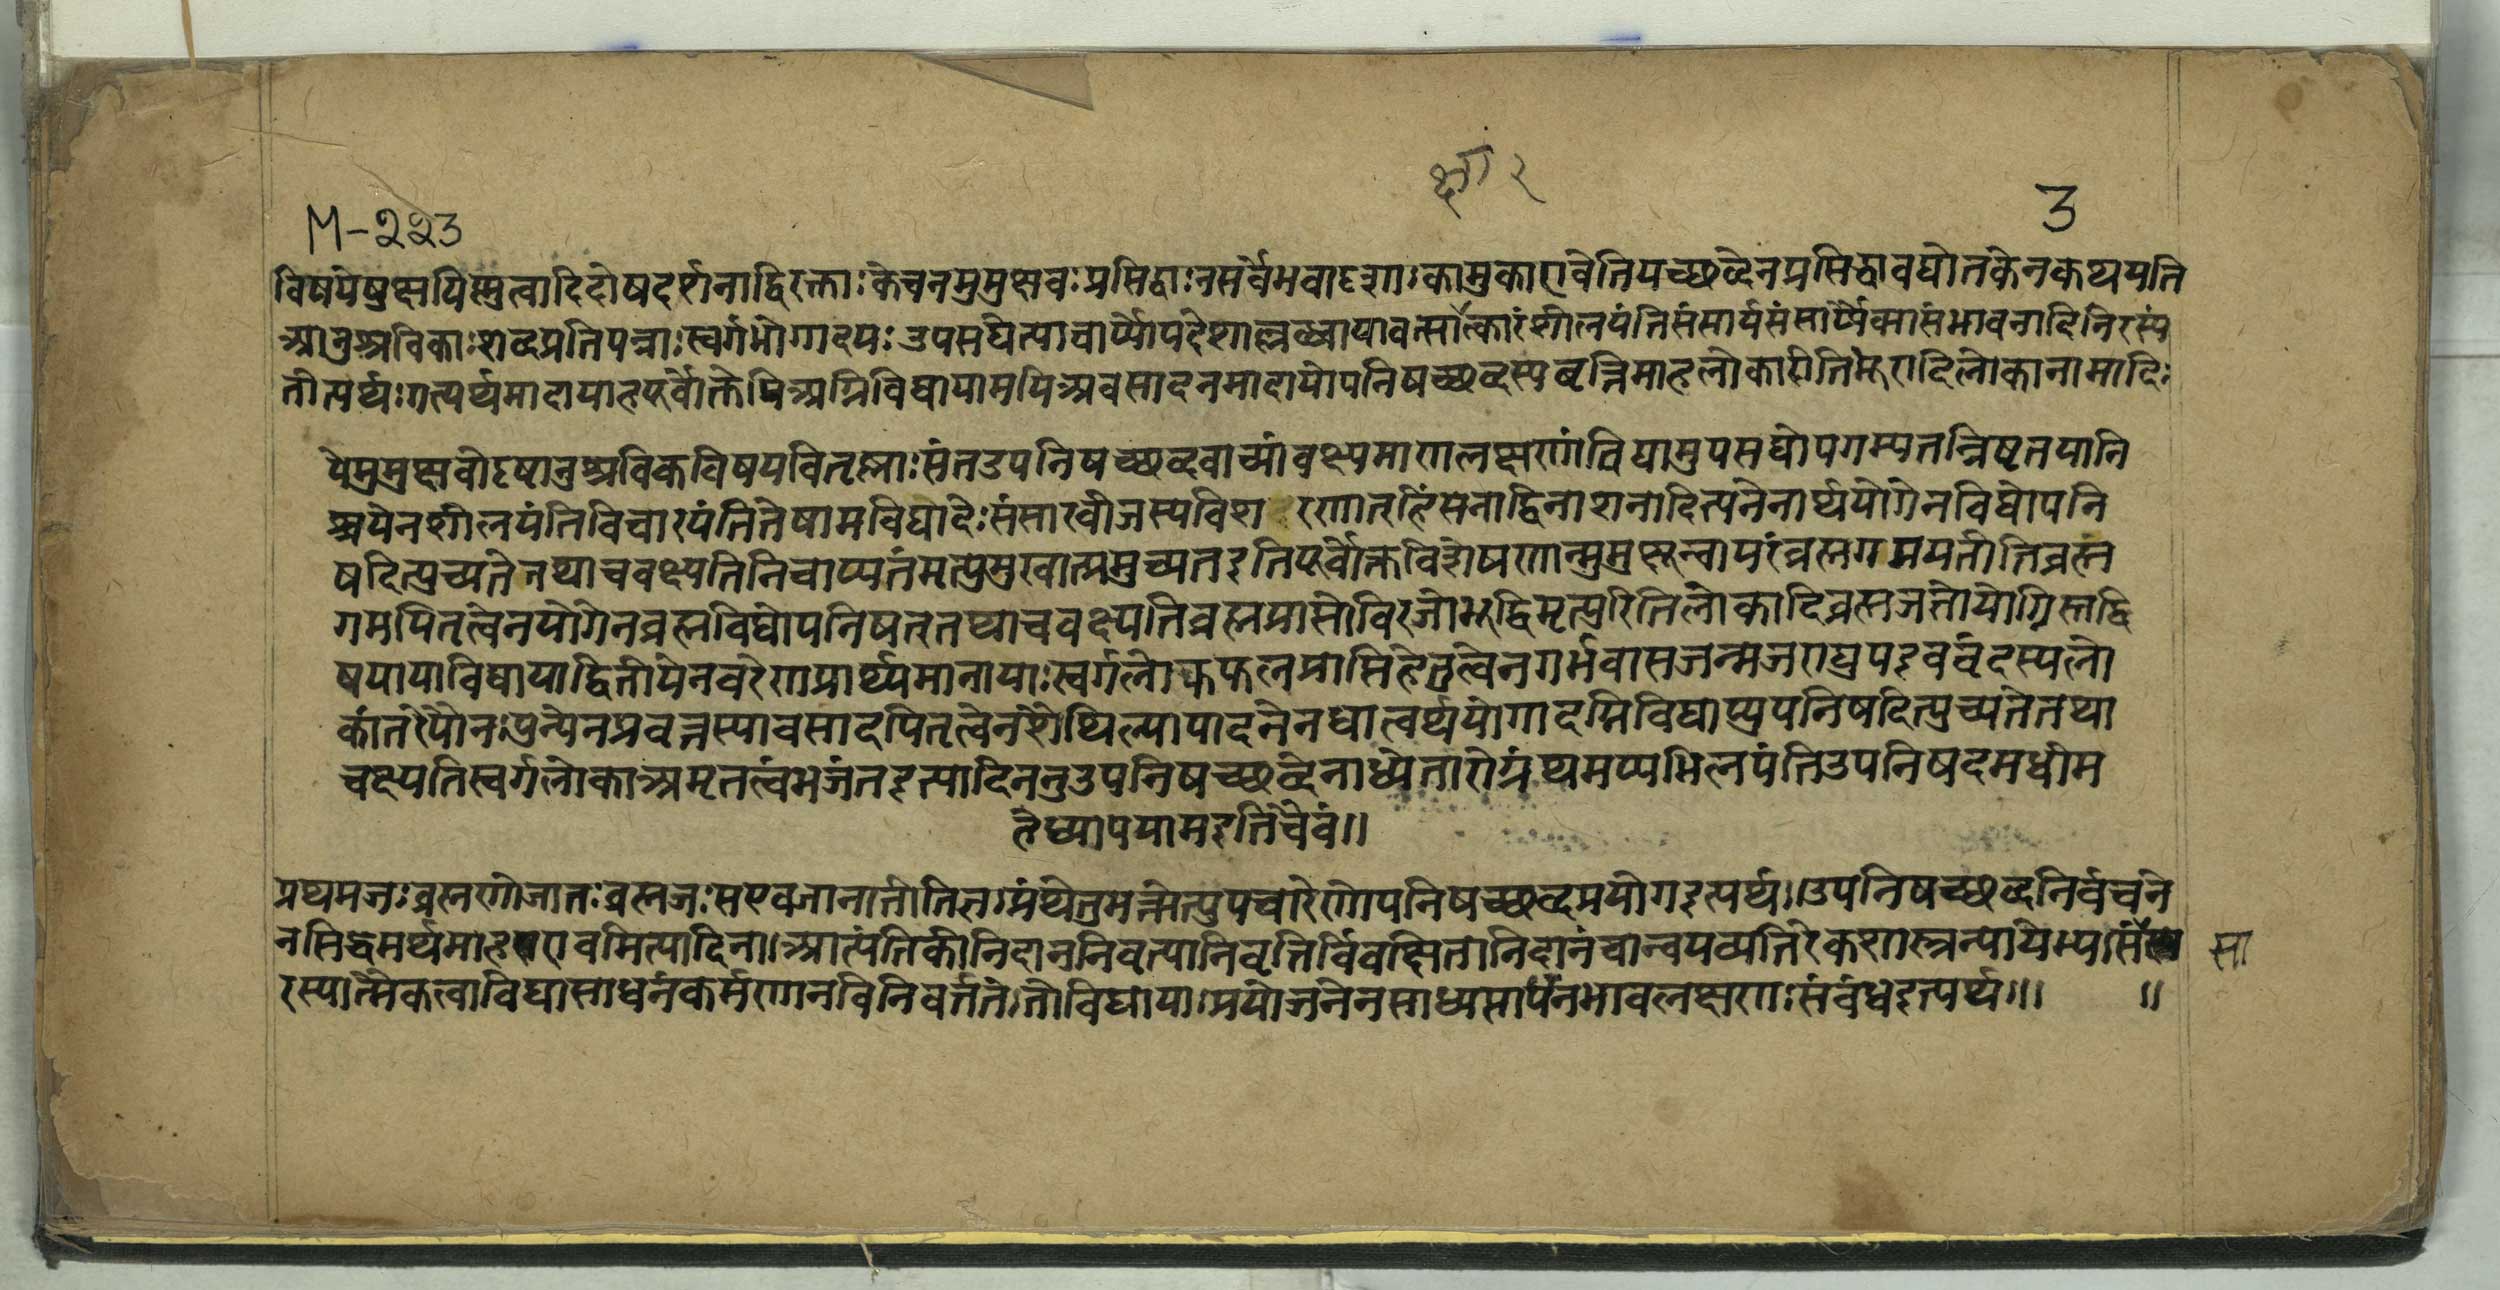 क्षा २
3
M-223
विषयेषुक्षयिस्नुत्वादिदोषदर्शनाद्विरक्ताःकेचनमुमुक्षवःप्रसिद्धाःनसर्वेभवादृशाःकामुकाएवेतियच्छब्देनप्रसिद्धावद्योतकेनकथयति
आनुश्रविकाःशब्दप्रतिपन्नाःस्वर्गभोगादयःउपसद्येत्याचार्य्योपदेशाल्लब्ध्वायावत्साक्षात्कारंशीलयंतिसंसार्यसंसार्य्यैक्यासंभावनादिनिरस्यं
तीत्यर्थःगत्यर्थमादायाहपूर्वोक्तेपिअग्निविद्यायामपिअवसादनमादायोपनिषच्छब्दस्यवृत्तिमाहलोकादीतिभूरादिलोकानामादिः
येमुमुक्षवोदृष्टानुश्रविकविषयवितृष्णाःसंतउपनिषच्छब्दवाच्यांवक्ष्यमाणलक्षणांविद्यामुपसद्योपगम्यतन्निष्टतयानि
श्चयेनशीलयंतिविचारयंतितेषामविद्यादेःसंसारबीजस्यविशरणात्हिंसनाद्विनाशनादित्यनेनार्थयोगेनविद्योपनि
षदित्युच्यतेतथाचवक्ष्यतिनिचाय्यतंमृत्युमुखात्प्रमुच्यतइतिपूर्वोक्तविशेषणान्मुमुक्षून्वापरंब्रह्मगमयतीतिब्रह्म
गमयितृत्वेनयोगेनब्रह्मविद्योपनिषत्तथाचवक्ष्यतिब्रह्मप्राप्तोविरजोभूद्विमृत्युरितिलोकादिब्रह्मजज्ञोयोग्निस्तद्वि
षयायाविद्यायाद्वितीयेनवरेणप्रार्थ्यमानायाःस्वर्गलोकफलप्राप्तिहेतुत्वेनगर्भवासजन्मजराद्युपद्रववृंदस्यलो
कांतरेपौनःपुन्येनप्रवृत्तस्यावसादयितृत्वेनशैथिल्यापादनेनधात्वर्थयोगादग्निविद्याप्युपनिषदित्युच्यतेतथा
चवक्ष्यतिस्वर्गलोकाअमृतत्वंभजंतइत्यादिननुउपनिषच्छब्देनाध्येतारोग्रंथमप्यभिलपंतिउपनिषदमधीम
हेध्यापयामइतिचैवं॥
प्रथमजःब्रह्मणोजातःब्रह्मजःसएवजानातीतिज्ञःग्रंथेतुभक्त्येत्युपचारेणोपनिषच्छब्दप्रयोगइत्यर्थः॥उपनिषच्छब्दनिर्वचने
नसिद्धमर्थमाहएवमित्यादिना॥आत्यंतिकीनिदाननिवृत्यानिवृत्तिर्विवक्षितानिदानंचान्वयव्यतिरेकशास्त्रन्यायेभ्यःसंसा
रस्यात्मैकत्वाविद्यासाधनंकर्मणानविनिवर्त्ततेःतोविद्यायाःप्रयोजनेनसाध्यसाधनभावलक्षणःसंबंधइत्यर्थः॥ ॥
सा